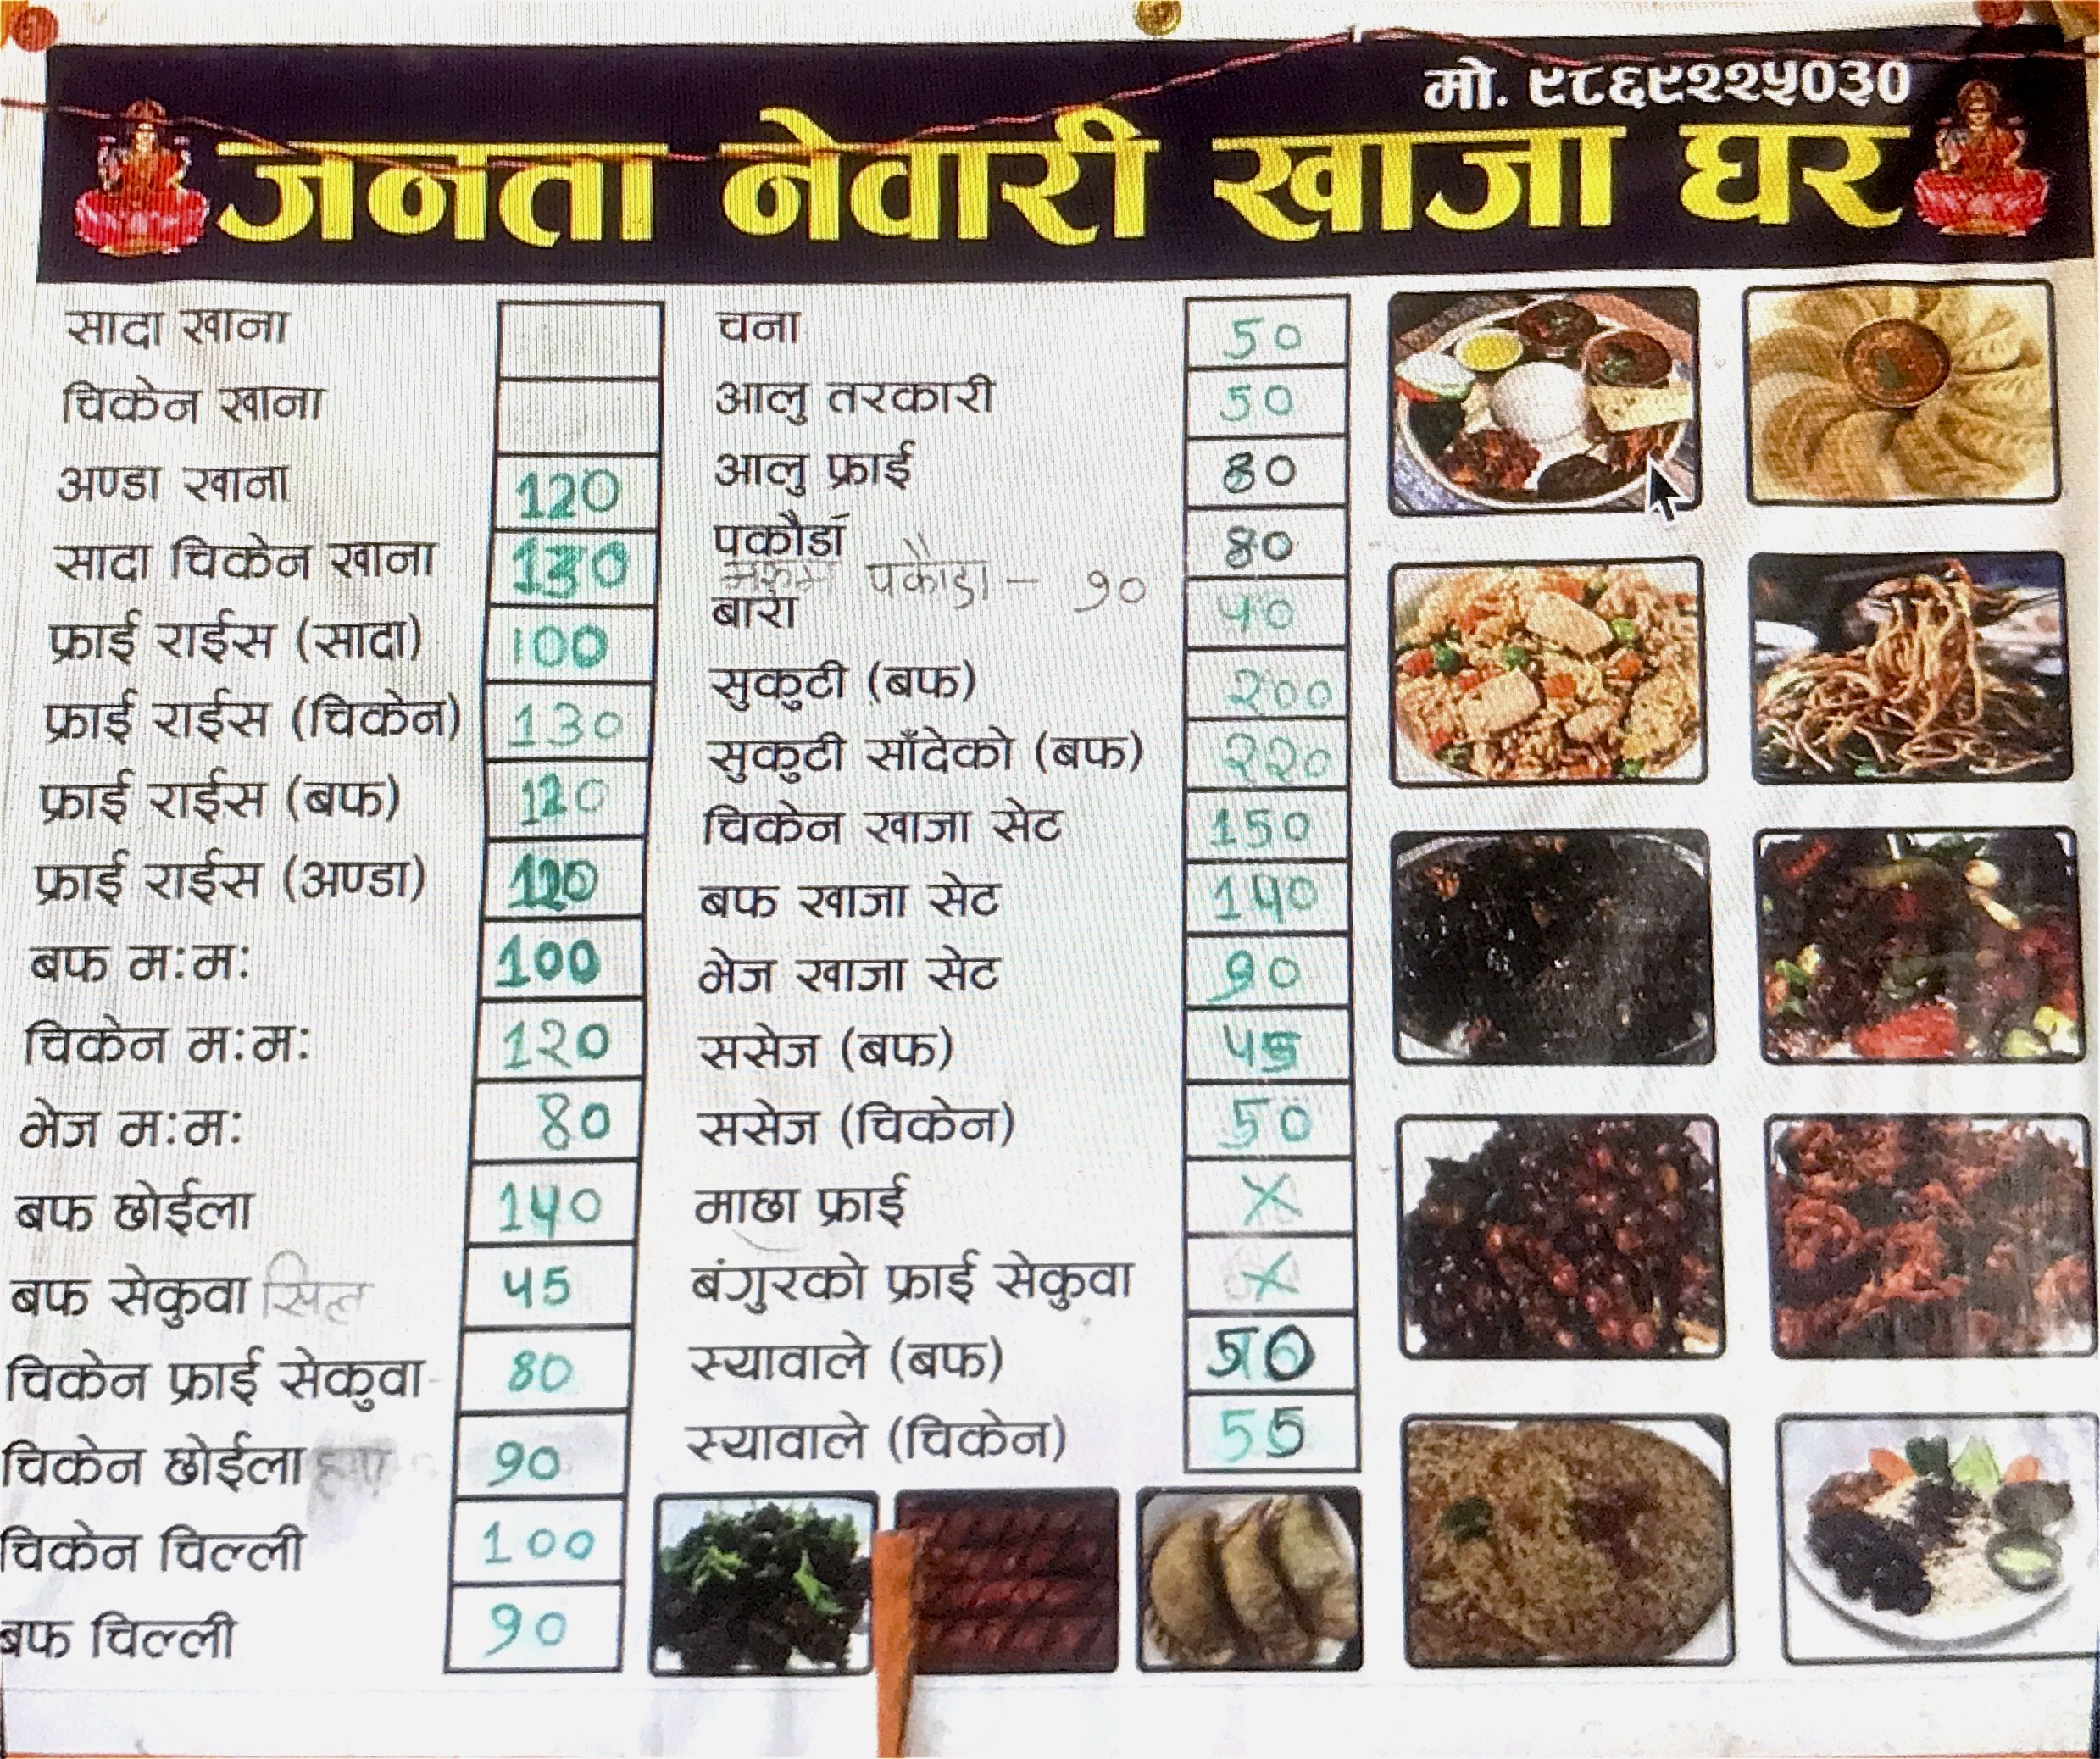 मो. ९८६९२२५०३०
जनता नेवारी खाजा घर
सादा खाना
चिकेन खाना
अण्डा खाना 120
सादा चिकेन खाना 130
फ्राई राईस (सादा) 100
फ्राई राईस (चिकेन) 130
फ्राई राईस (बफ) 120
फ्राई राईस (अण्डा) 120
बफ म:म: 100
चिकेन म:म: 120
भेज म:म: 80
बफ छोईला 140
बफ सेकुवा 45
चिकेन फ्राई सेकुवा 80
चिकेन छोईला 90
चिकेन चिल्ली 100
बफ चिल्ली 90
चना 50
आलु तरकारी 50
आलु फ्राई 80
पकौडा 80
पकौडा - ९०
बारा 40
सुकुटी (बफ) 200
सुकुटी साँदेको (बफ) 220
चिकेन खाजा सेट 150
बफ खाजा सेट 140
भेज खाजा सेट 90
ससेज (बफ) 45
ससेज (चिकेन) 50
माछा फ्राई X
बंगुरको फ्राई सेकुवा X
स्यावाले (बफ) 50
स्यावाले (चिकेन) 55